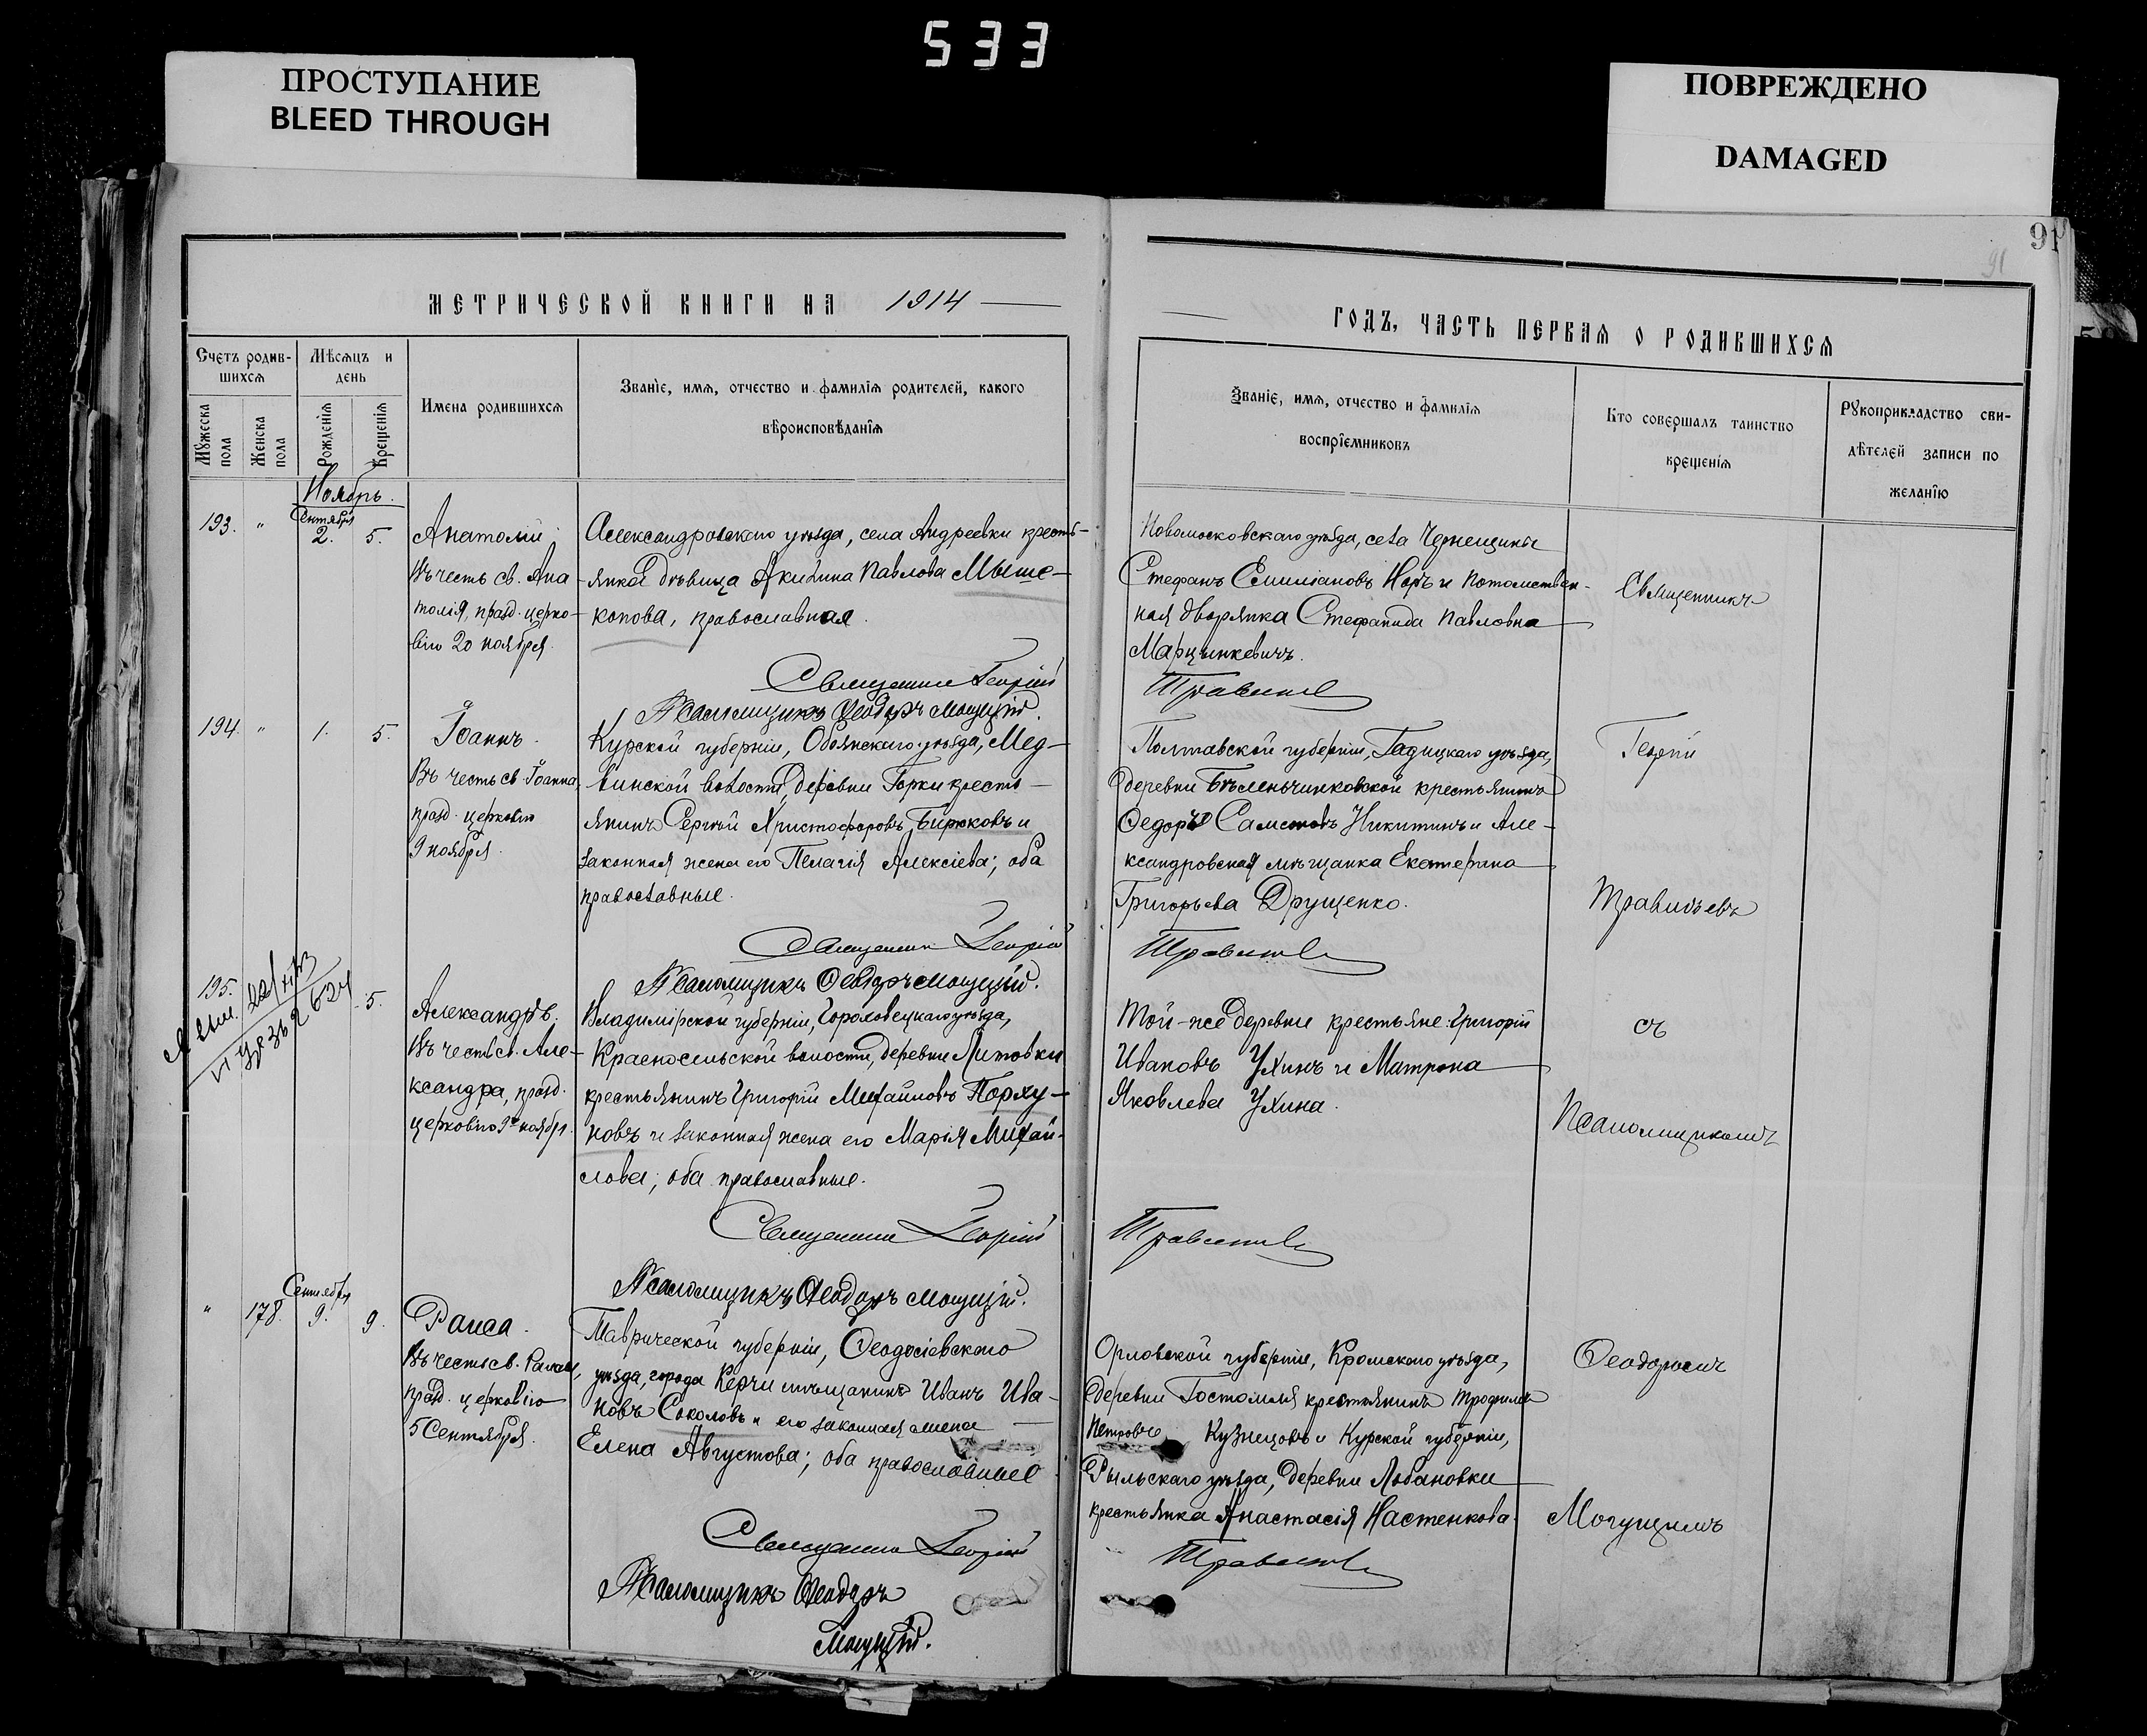 533
ПРОСТУПАНИЕ
BLEED THROUGH
ПОВРЕЖДЕНО
DAMAGED
91
91
МЕТРИЧЕСКОЙ КНИГИ НА 1914
ГОДЪ, ЧАСТЬ ПЕРВАЯ О РОДИВШИХСЯ
Счетъ родив-
шихся
Мѣсяцъ и
день
Мужеска
пола
Женска
пола
Рожденія
Крещенія
Имена родившихся
Званіе, имя, отчество и фамилія родителей, какого
вѣроисповѣданія
Званіе, имя, отчество и фамилія
воспріемниковъ
Кто совершалъ таинство
крещенія
Рукоприкладство сви-
дѣтелей записи по
желанію
Ноябрь.
193. " Сентября 2. 5.
Анатолій
Въ честь св. Ана-
толія, празд. церко-
вію 20 ноября.
Александровскаго уѣзда, села Андреевки кресть-
янка дѣвица Акилина Павлова Мыше-
копова, православная.
Священникъ Георгій
Псаломщикъ Ѳеодоръ Могущій.
Новомосковскаго уѣзда, села Чернещины
Стефанъ Емиліановъ Норъ и потомствен-
ная дворянка Стефанида Павловна
Марцинкевичъ.
Священникъ
194. " 1. 5.
Іоаннъ.
Въ честь св. Іоанна,
празд. церковію
9 ноября.
Курской губерніи, Обоянскаго уѣзда, Мед-
винской волости, деревни Горки кресть-
янинъ Сергѣй Христофоровъ Бирюковъ и
законная жена его Пелагія Алексіева; оба
православные.
Священникъ Георгій
Псаломщикъ Ѳеодоръ Могущій.
Полтавской губерніи, Гадицкаго уѣзда,
деревни крестьянинъ
Ѳедоръ Никитинъ и Але-
ксандровская мѣщанка Екатерина
Григорьева Друщенко.
Георгій
195. 5.
Александръ.
Въ честь св. Але-
ксандра, празд.
церковію 9 ноября.
Владимірской губерніи, Гороховецкаго уѣзда,
Красносельской волости, деревни Литовки
крестьянинъ Григорій Михайловъ Порху-
новъ и законная жена его Марія Михай-
лова; оба православные.
Священникъ Георгій
Псаломщикъ Ѳеодоръ Могущій.
Той-же деревни крестьяне: Григорій
Ивановъ Ухинъ и Матрона
Яковлева Ухина.
съ
Псаломщикомъ
" 178. Сентября 9. 9.
Раиса.
Въ честь св. Раисы,
празд. церковію
5 Сентября.
Таврической губерніи, Ѳеодосіевскаго
уѣзда, города Керчи мѣщанинъ Иванъ Ива-
новъ Соколовъ и его законная жена
Елена Августова; оба православные
Священникъ Георгій
Псаломщикъ Ѳеодоръ
Могущій.
Орловской губерніи, Кромскаго уѣзда,
деревни Гостомля крестьянинъ Трофимъ
Петровъ Кузнецовъ и Курской губерніи,
Рыльскаго уѣзда, деревни Лобановки
крестьянка Анастасія Настенкова.
Ѳеодоромъ
Могущимъ